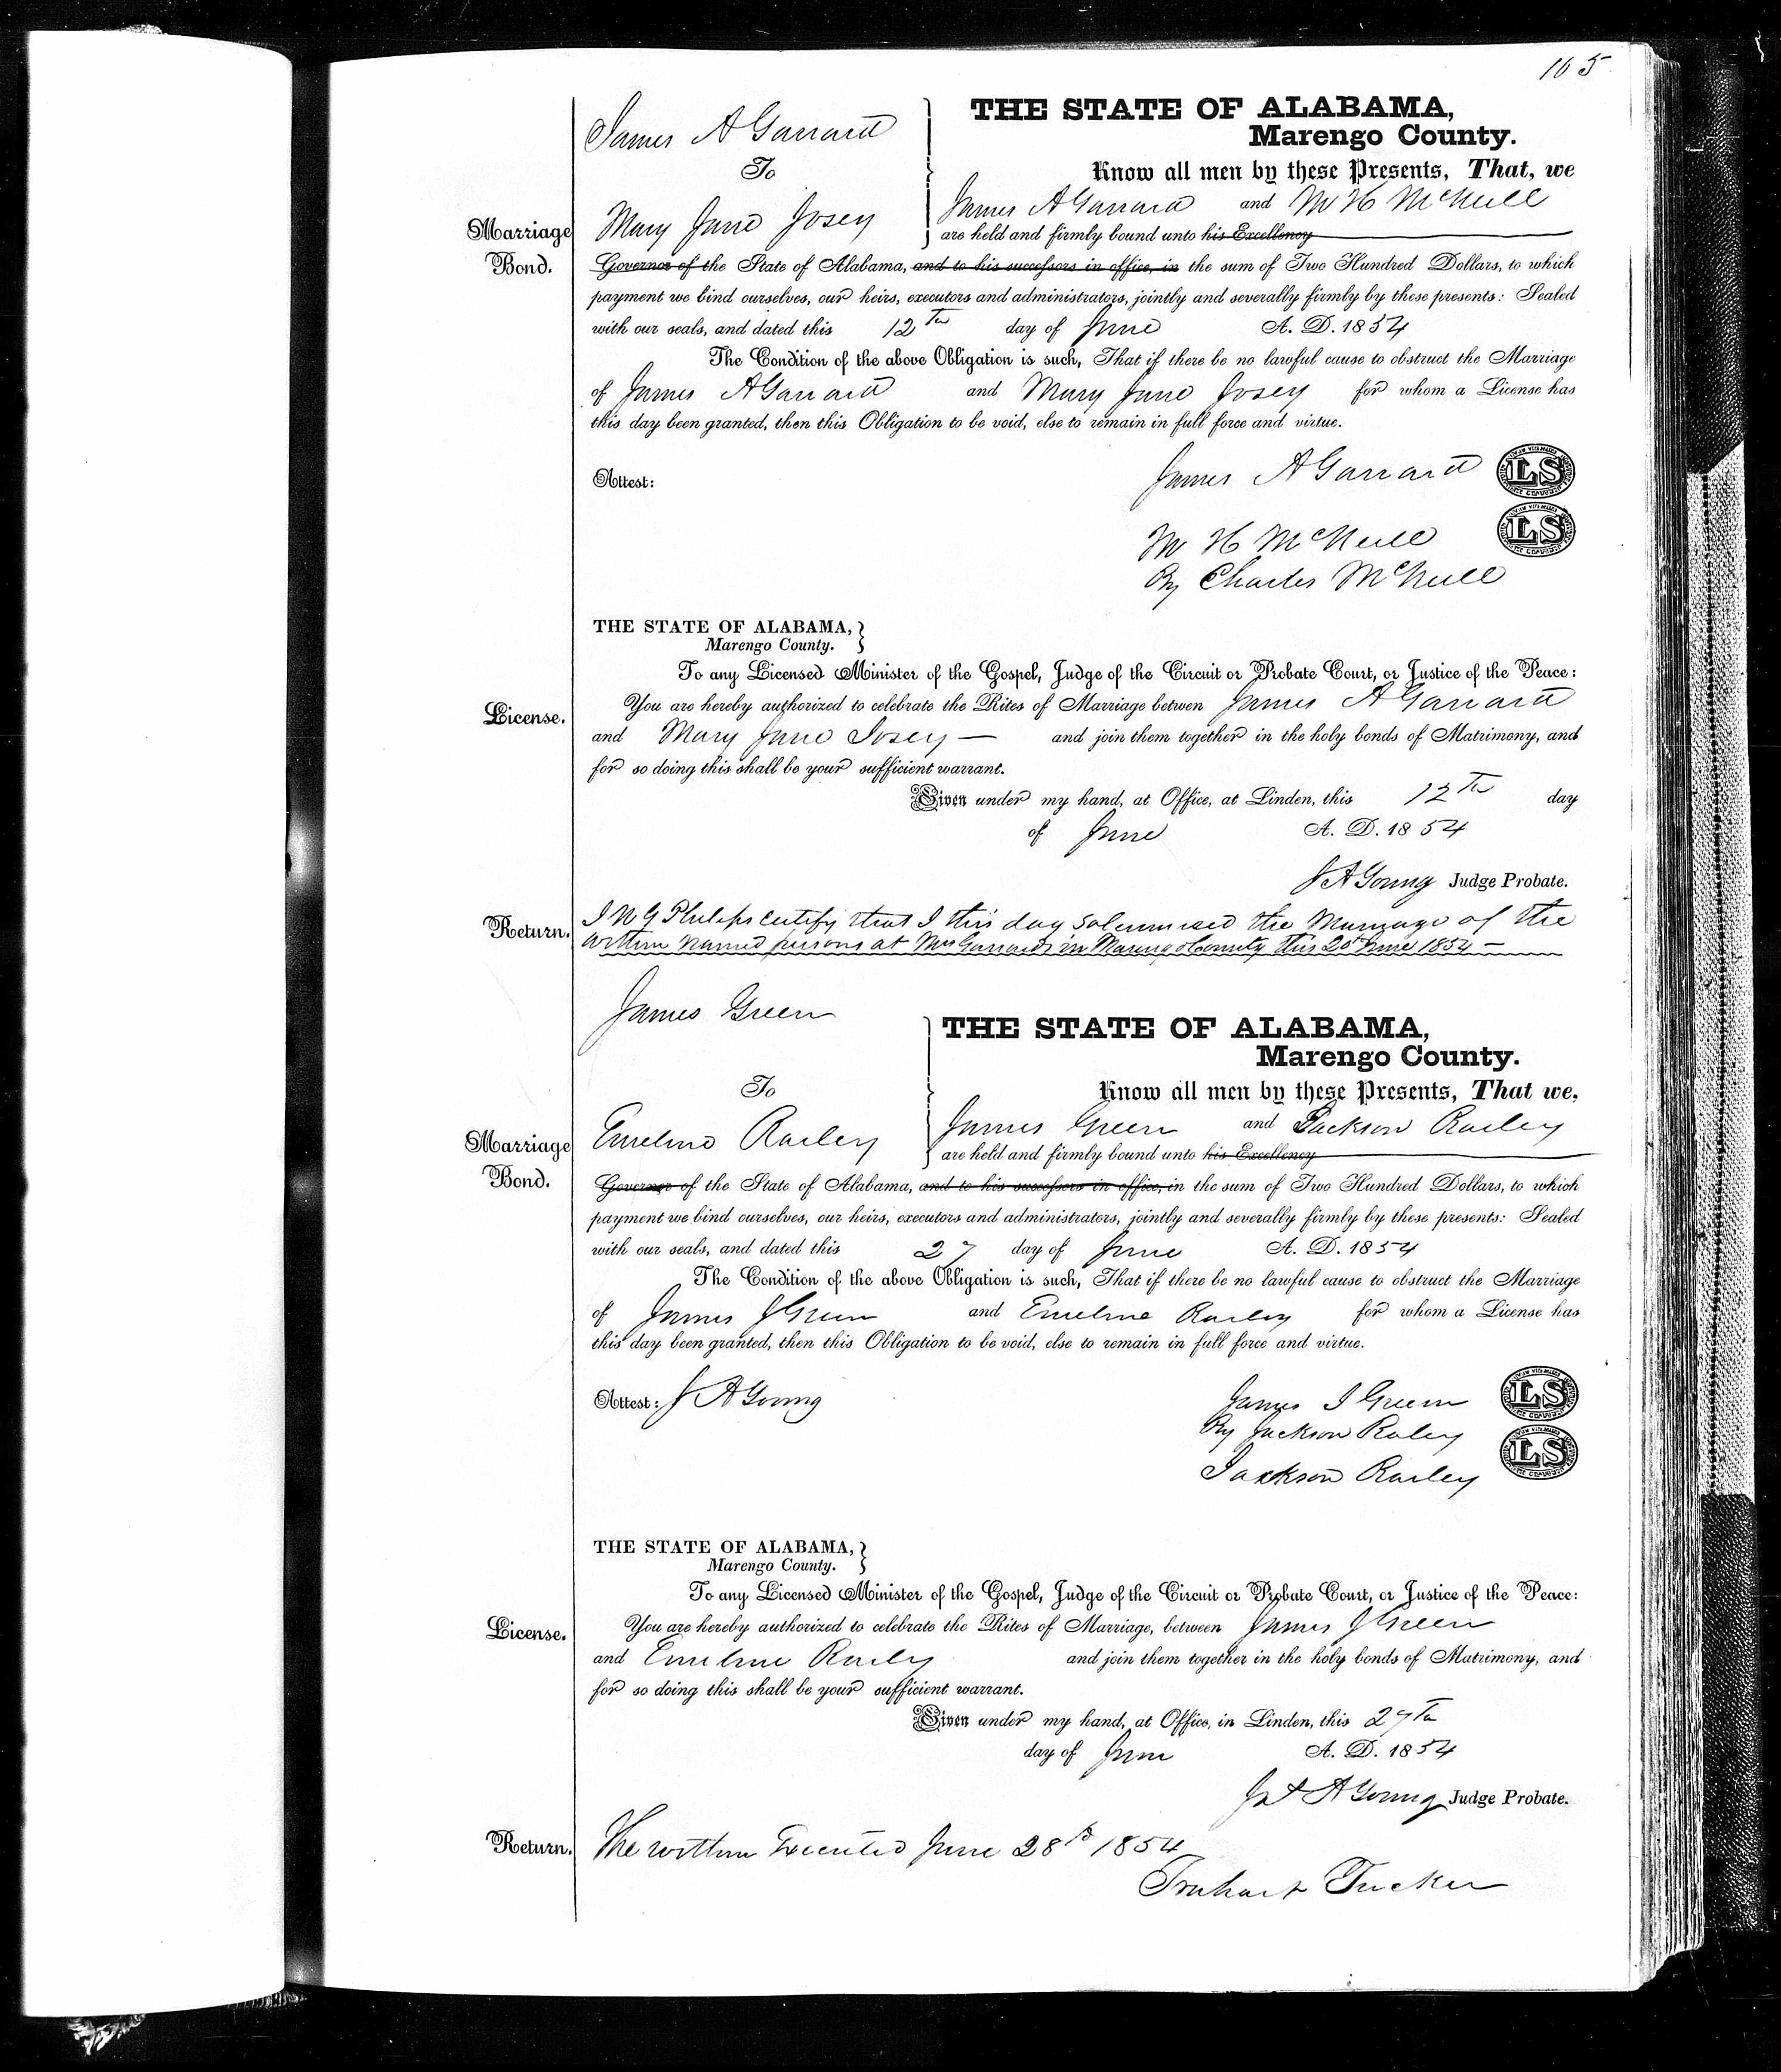 165
James A Garrard
To
Mary Jane Josey
THE STATE OF ALABAMA,
Marengo County.
Know all men by these Presents, That, we
James A Garrard and M H McNeill
are held and firmly bound unto his Excellency
Marriage Bond.
Governor of the State of Alabama, and to his successors in office, in the sum of Two Hundred Dollars, to which
payment we bind ourselves, our heirs, executors and administrators, jointly and severally firmly by these presents: Sealed
with our seals, and dated this 12th day of June A. D. 1854
The Condition of the above Obligation is such, That if there be no lawful cause to obstruct the Marriage
of James A Garrard and Mary Jane Josey for whom a License has
this day been granted, then this Obligation to be void, else to remain in full force and virtue.
Attest: James A Garrard LS
M H McNeill LS
By Charles McNeill
THE STATE OF ALABAMA,
Marengo County.
To any Licensed Minister of the Gospel, Judge of the Circuit or Probate Court, or Justice of the Peace:
License. You are hereby authorized to celebrate the Rites of Marriage betwen James A Garrard
and Mary Jane Josey — and join them together in the holy bonds of Matrimony, and
for so doing this shall be your sufficient warrant.
Given under my hand, at Office, at Linden, this 12th day
of June A. D. 1854
J A Young Judge Probate.
Return. I W G Philips certify that I this day solemnised the Marriage of the
within named persons at Mrs Garrards in Marengo County this 20th June 1854 —
James Green
To
Emeline Railey
THE STATE OF ALABAMA,
Marengo County.
Know all men by these Presents, That we,
James Green and Jackson Railey
are held and firmly bound unto his Excellency
Marriage Bond.
Governor of the State of Alabama, and to his successors in office, in the sum of Two Hundred Dollars, to which
payment we bind ourselves, our heirs, executors and administrators, jointly and severally firmly by these presents: Sealed
with our seals, and dated this 27 day of June A. D. 1854
The Condition of the above Obligation is such, That if there be no lawful cause to obstruct the Marriage
of James J Green and Emeline Railey for whom a License has
this day been granted, then this Obligation to be void, else to remain in full force and virtue.
Attest: J A Young James J Green LS
By Jackson Raley
Jackson Railey LS
THE STATE OF ALABAMA,
Marengo County.
To any Licensed Minister of the Gospel, Judge of the Circuit or Probate Court, or Justice of the Peace:
License. You are hereby authorized to celebrate the Rites of Marriage, between James J Green
and Emeline Raily and join them together in the holy bonds of Matrimony, and
for so doing this shall be your sufficient warrant.
Given under my hand, at Office, in Linden, this 27th
day of June A. D. 1854
Jas A Young Judge Probate.
Return. The within Executed June 28th 1854
Tucker